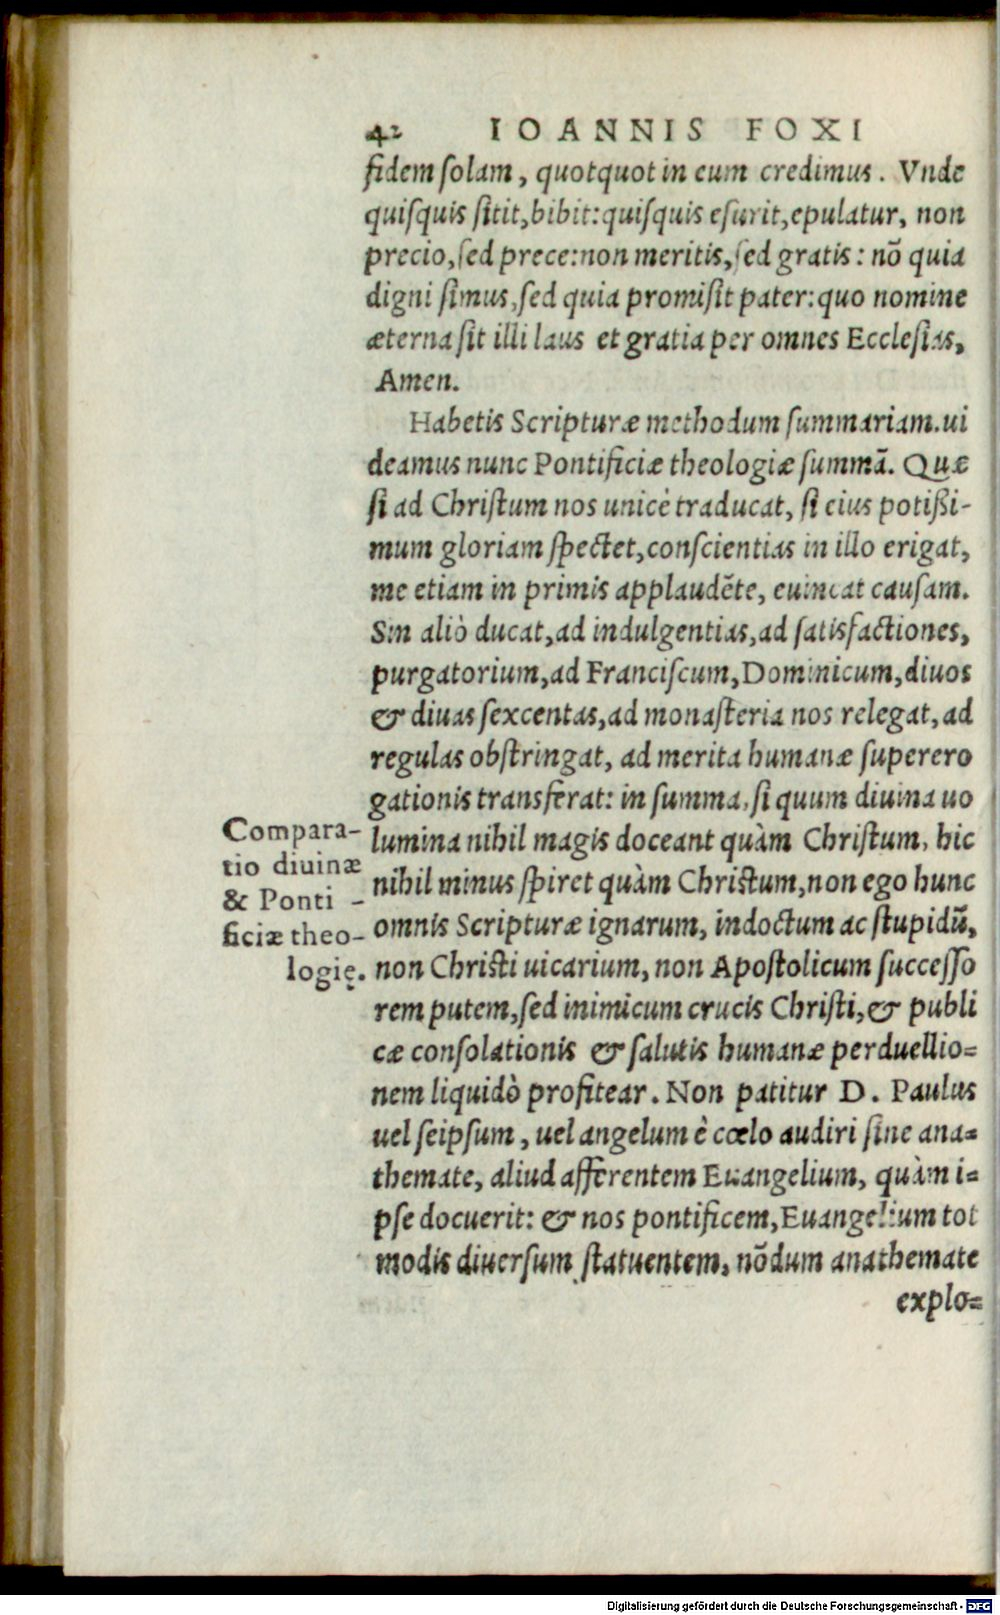 42 IOANNIS FOXI
fidem ſolam, quotquot in eum credimus. Vnde
quiſquis ſitit, bibit: quiſquis eſurit, epulatur, non
precio, ſed prece: non meritis, ſed gratis: nō quia
digni ſimus, ſed quia promiſit pater: quo nomine
æterna ſit illi laus et gratia per omnes Eccleſias,
Amen.
Habetis Scripturæ methodum ſummariam. ui
deamus nunc Pontificiæ theologiæ ſummā. Quæ
ſi ad Chriſtum nos unicè traducat, ſi eius potißi-
mum gloriam ſpectet, conſcientias in illo erigat,
me etiam in primis applaudēte, euincat cauſam.
Sin aliò ducat, ad indulgentias, ad ſatisfactiones,
purgatorium, ad Franciſcum, Dominicum, diuos
& diuas ſexcentas, ad monaſteria nos relegat, ad
regulas obſtringat, ad merita humanæ ſuperero
gationis transferat: in ſumma, ſi quum diuina uo
lumina nihil magis doceant quàm Chriſtum, hic
nihil minus ſpiret quàm Chriſtum, non ego hunc
omnis Scripturæ ignarum, indoctum ac ſtupidū,
non Chriſti uicarium, non Apoſtolicum ſucceſſo
rem putem, ſed inimicum crucis Chriſti, & publi
cæ conſolationis & ſalutis humanæ perduellio=
nem liquidò profitear. Non patitur D. Paulus
uel ſeipſum, uel angelum è cœlo audiri ſine ana=
themate, aliud afferentem Euangelium, quàm i=
pſe docuerit: & nos pontificem, Euangelium tot
modis diuerſum ſtatuentem, nōdum anathemate
explo=
Compara-
tio diuinæ
& Ponti -
ficiæ theo-
logię.
Digitalisierung gefördert durch die Deutsche Forschungsgemeinschaft - DFG